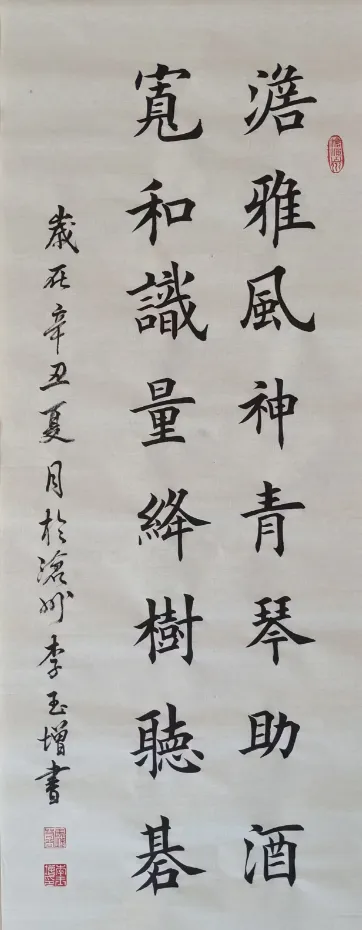 澹雅風神青琴助酒
寬和識量絳樹聽碁
歲在辛丑夏月於滄州李玉增書